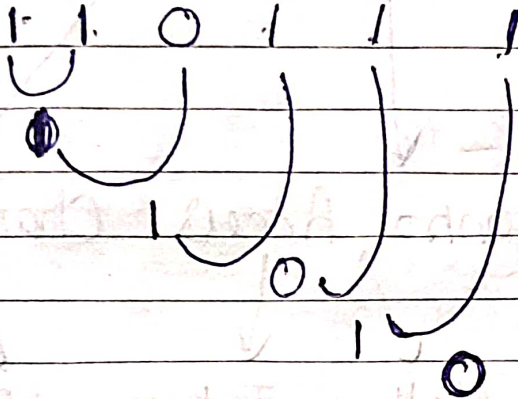 1 1 0 1 1 1
0
1
0
1
0